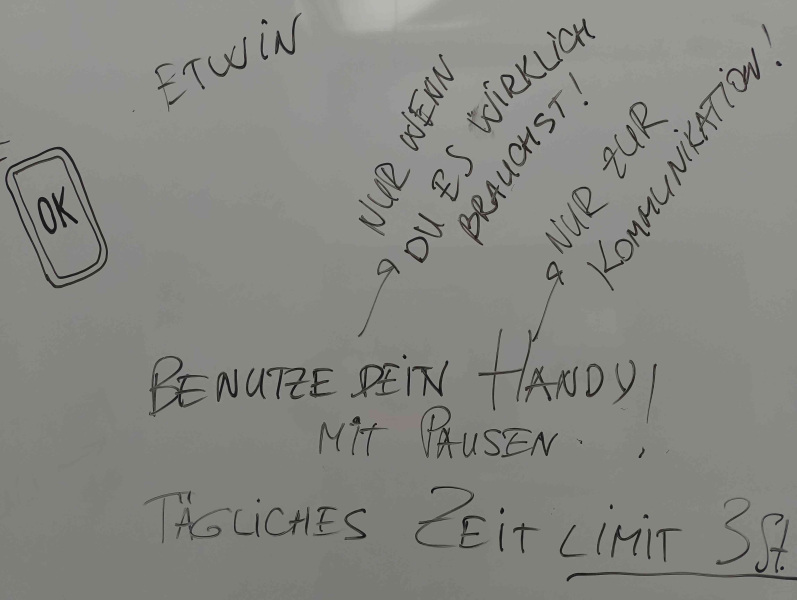 ETWIN
NUR WENN
DU ES WIRKLICH
BRAUCHST!
NUR ZUR
KOMMUNIKATION!
OK
BENUTZE DEIN HANDY!
MIT PAUSEN.
TÄGLICHES ZEIT LIMIT 3 St.